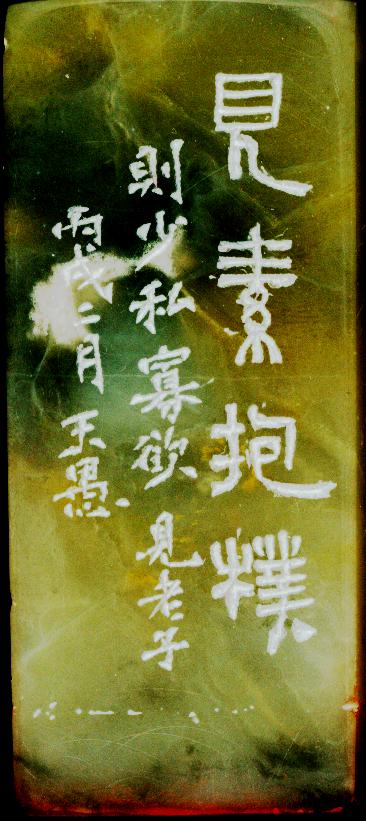 見素抱樸
則少私寡欲 見老子
丙戌二月 天愚